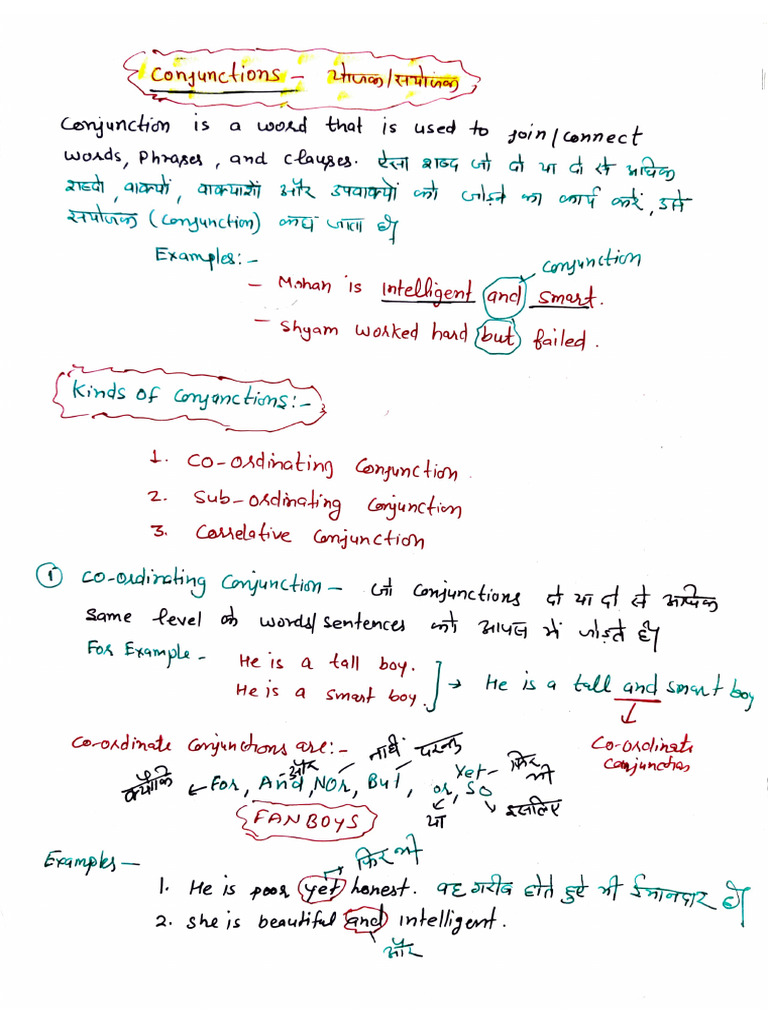 Conjunctions - योजक/संयोजक
Conjunction is a word that is used to join/connect
words, phrases, and clauses. ऐसा शब्द जो दो या दो से अधिक
शब्दों, वाक्यों, वाक्यांशों और उपवाक्यों को जोड़ने का कार्य करें, उसे
संयोजक (Conjunction) कहा जाता है।
Examples:-
conjunction
- Mohan is intelligent and smart.
- Shyam worked hard but failed.
Kinds of Conjunctions:-
1. Co-ordinating Conjunction.
2. Sub-ordinating Conjunction
3. Correlative Conjunction
① Co-ordinating Conjunction - जो Conjunctions दो या दो से अधिक
same level के words/sentences को आपस में जोड़ते है।
For Example -
He is a tall boy.
He is a smart boy. → He is a tall and smart boy
Co-ordinate Conjunctions are:-
Co-ordinate conjunction
और नाही परन्तु
क्योंकि ← For, And, Nor, But, or, Yet - फिर भी, So
या इसलिए
FANBOYS
Examples -
फिर भी
1. He is poor yet honest. वह गरीब होते हुऐ भी ईमानदार है।
2. She is beautiful and intelligent.
और